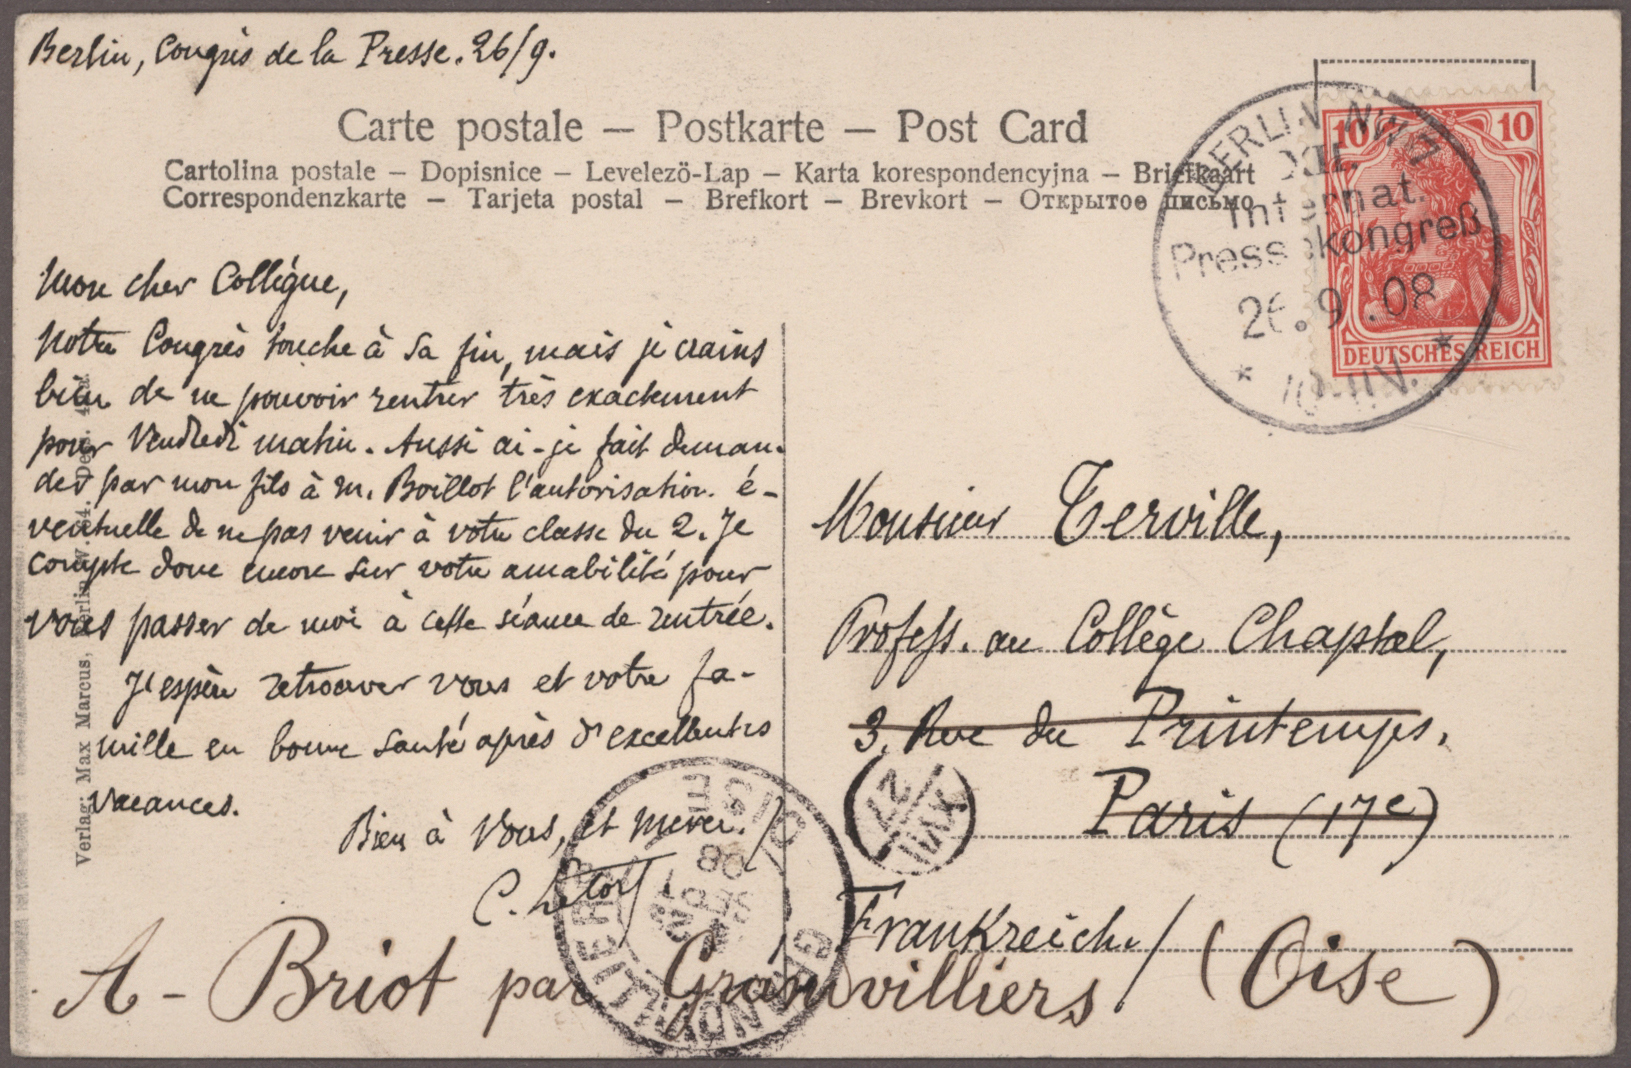 Berlin, Congrès de la Presse. 26/9.
Carte postale — Postkarte — Post Card
Cartolina postale — Dopisnice — Levelezö-Lap — Karta korespondencyjna — Briefkaart
Correspondenzkarte — Tarjeta postal — Brefkort — Brevkort — Открытое письмо
BERLIN NW
XII.
Internat.
Pressekongreß
26.9.08
* 10-11V. *
10 10
DEUTSCHES REICH
Mon cher Collègue,
Notre Congrès touche à sa fin, mais je crains
bien de ne pouvoir rentrer très exactement
pour Vendredi matin. Aussi ai-je fait deman-
der par mon fils à M. Boillot l'autorisation é-
ventuelle de ne pas venir à votre classe du 2. Je
compte donc encore sur votre amabilité pour
vous passer de moi à cette séance de rentrée.
J'espère retrouver vous et votre fa-
mille en bonne santé après d'excellentes
vacances.
Bien à Vous, et merci.
C.
Monsieur Terville,
Profess. au Collège Chaptal,
3, Rue du Printemps.
Paris (17e)
Frankreich
A - Briot par Grandvilliers (Oise)
XVII
27
GRANDVILLIERS
OISE
SEPT
08
Verlag: Max Marcus, Berlin W.